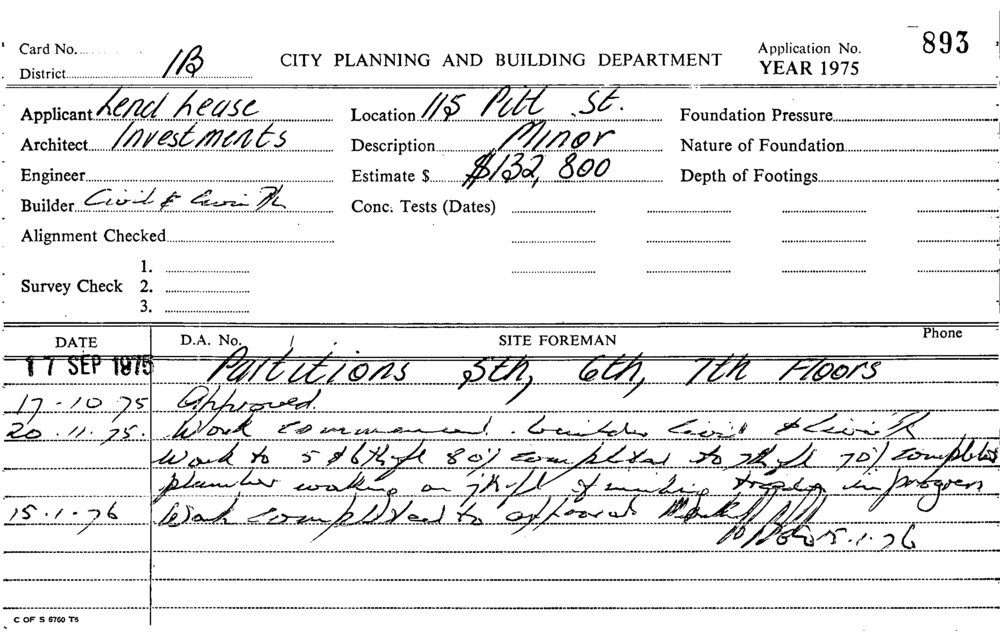 Card No.
District 1B
CITY PLANNING AND BUILDING DEPARTMENT
Application No. 893
YEAR 1975
Applicant Lend Lease
Architect Investments
Engineer
Builder Civil & Civic P/L
Alignment Checked
Survey Check 1.
2.
3.
Location 115 Pitt St.
Description Minor
Estimate $ $132,800
Conc. Tests (Dates)
Foundation Pressure
Nature of Foundation
Depth of Footings
DATE D.A. No. SITE FOREMAN Phone
17 SEP 1975 Partitions 5th, 6th, 7th Floors
17-10-75 Approved.
20.11.75. Work commenced. builder Civil & Civic P/L
Work to 5 & 6th fl 80% completed to 7th fl 70% completed
plumber working on 7th fl finishing trades in progress
15.1.76 Work completed to approval
15.1.76
C OF S 6760 T5